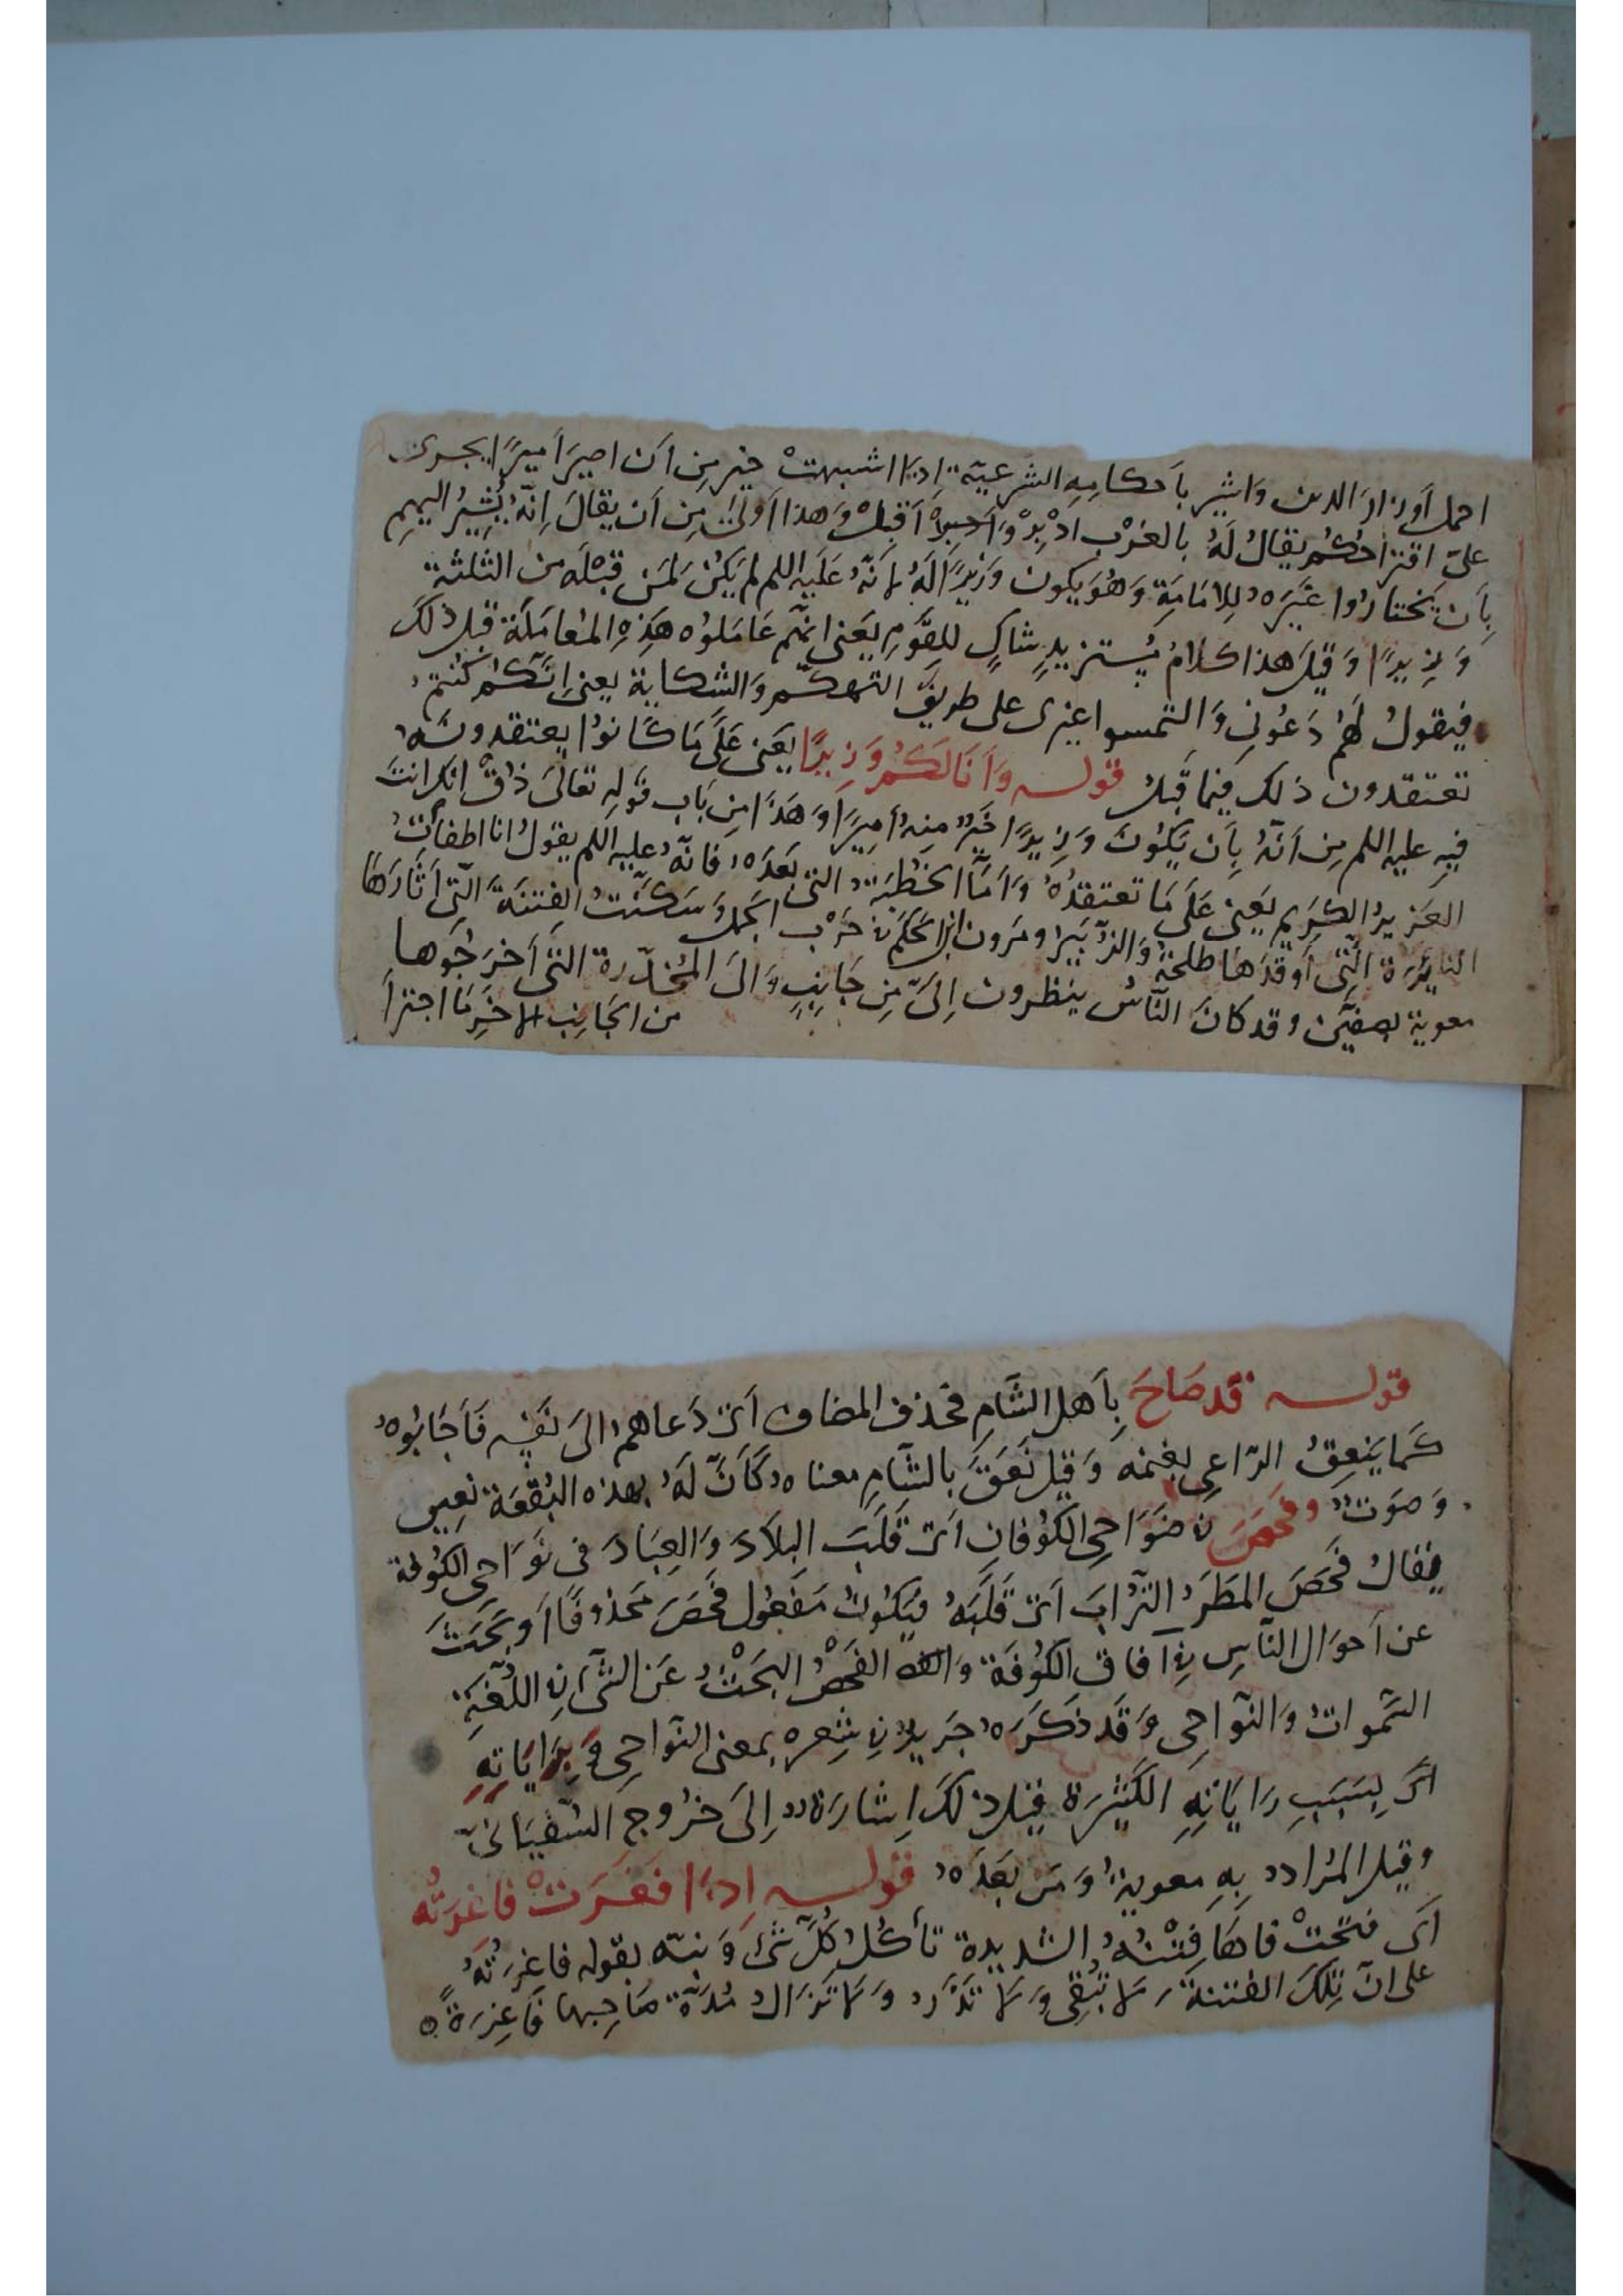 احمل أوزار الدين واشير بأحكامه الشرعية إذا اشبهت خير من أن اصير أميرًا يجري
على اقتراحكم يقال له بالعزب ادبر وأدبر أقبل وهذا أولى من أن يقال إنه يشير اليهم
بأن يختاروا غيره للامامة وهو يكون وزيرًا له لأنه عليه السلم لم يكن لمن قبله من الثلثة
وزيرًا وقيل هذا كلام يستزيد شاك للقوم يعني انهم عاملوه هذه المعاملة قبل ذلك
فيقول لهم دعوني والتمسوا غيري على طريق التهكم والشكاية يعني إنكم كنتم
تعتقدون ذلك فيما قبل قوله وأنا لكم وزيرًا يعني على ما كانوا يعتقدونه
فيه عليه السلم من أنه بأن يكون وزيرًا خير منه أميرًا وهذا من باب قوله تعالى ذق انك انت
العزيز الكريم يعني على ما تعتقده وأما الخطبة التي بعده فانه عليه السلم يقول انا اطفأت
النايرة التي أوقدها طلحة والزبير ومرون ابن الحكم في حرب الجمل وسكنت الفتنة التي أثارها
معوية بصفين وقد كان الناس ينظرون إلي من جانب والى المخدرة التي أخرجوها
من الجانب الاخر ما اجترأ
قوله قد صاح بأهل الشام فحذف المضاف أي دعاهم الى نفسه فأجابوه
كما ينعق الراعي بغنمه وقيل نعق بالشام معناه كأن له بهذه البقعة نعيق
وصوت وفحص في ضواحي الكوفان أي قلب البلاد والعباد في نواحي الكوفة
يقال فحص المطر التراب أي قلبه فيكون مفعول فحص محذوفًا أو بحث
عن أحوال الناس في آفاق الكوفة والفحص البحث عن الشئ في اللغة
السموات والنواحي وقد ذكره جرير في شعره بمعنى النواحي وبراياته
أي بسبب راياته الكثيرة قيل ذلك إشارة إلى خروج السفياني
وقيل المراد به معوية ومن بعده قوله إذا فغرت فاغرته
أي فتحت فاها فتنته الشديدة تأكل كل شئ ونبه بقوله فاغرته
على ان تلك الفتنة لا تبقي ولا تذر ولا تزال مدة صاحبها فاغرة